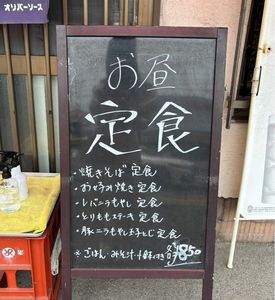 オリバーソース
お昼
定食
・焼きそば 定食
・お好み焼き 定食
・レバニラもやし 定食
・とりももステーキ 定食
・豚ニラもやし玉子とじ 定食
※ごはん・みそ汁・小鉢付き 各¥850